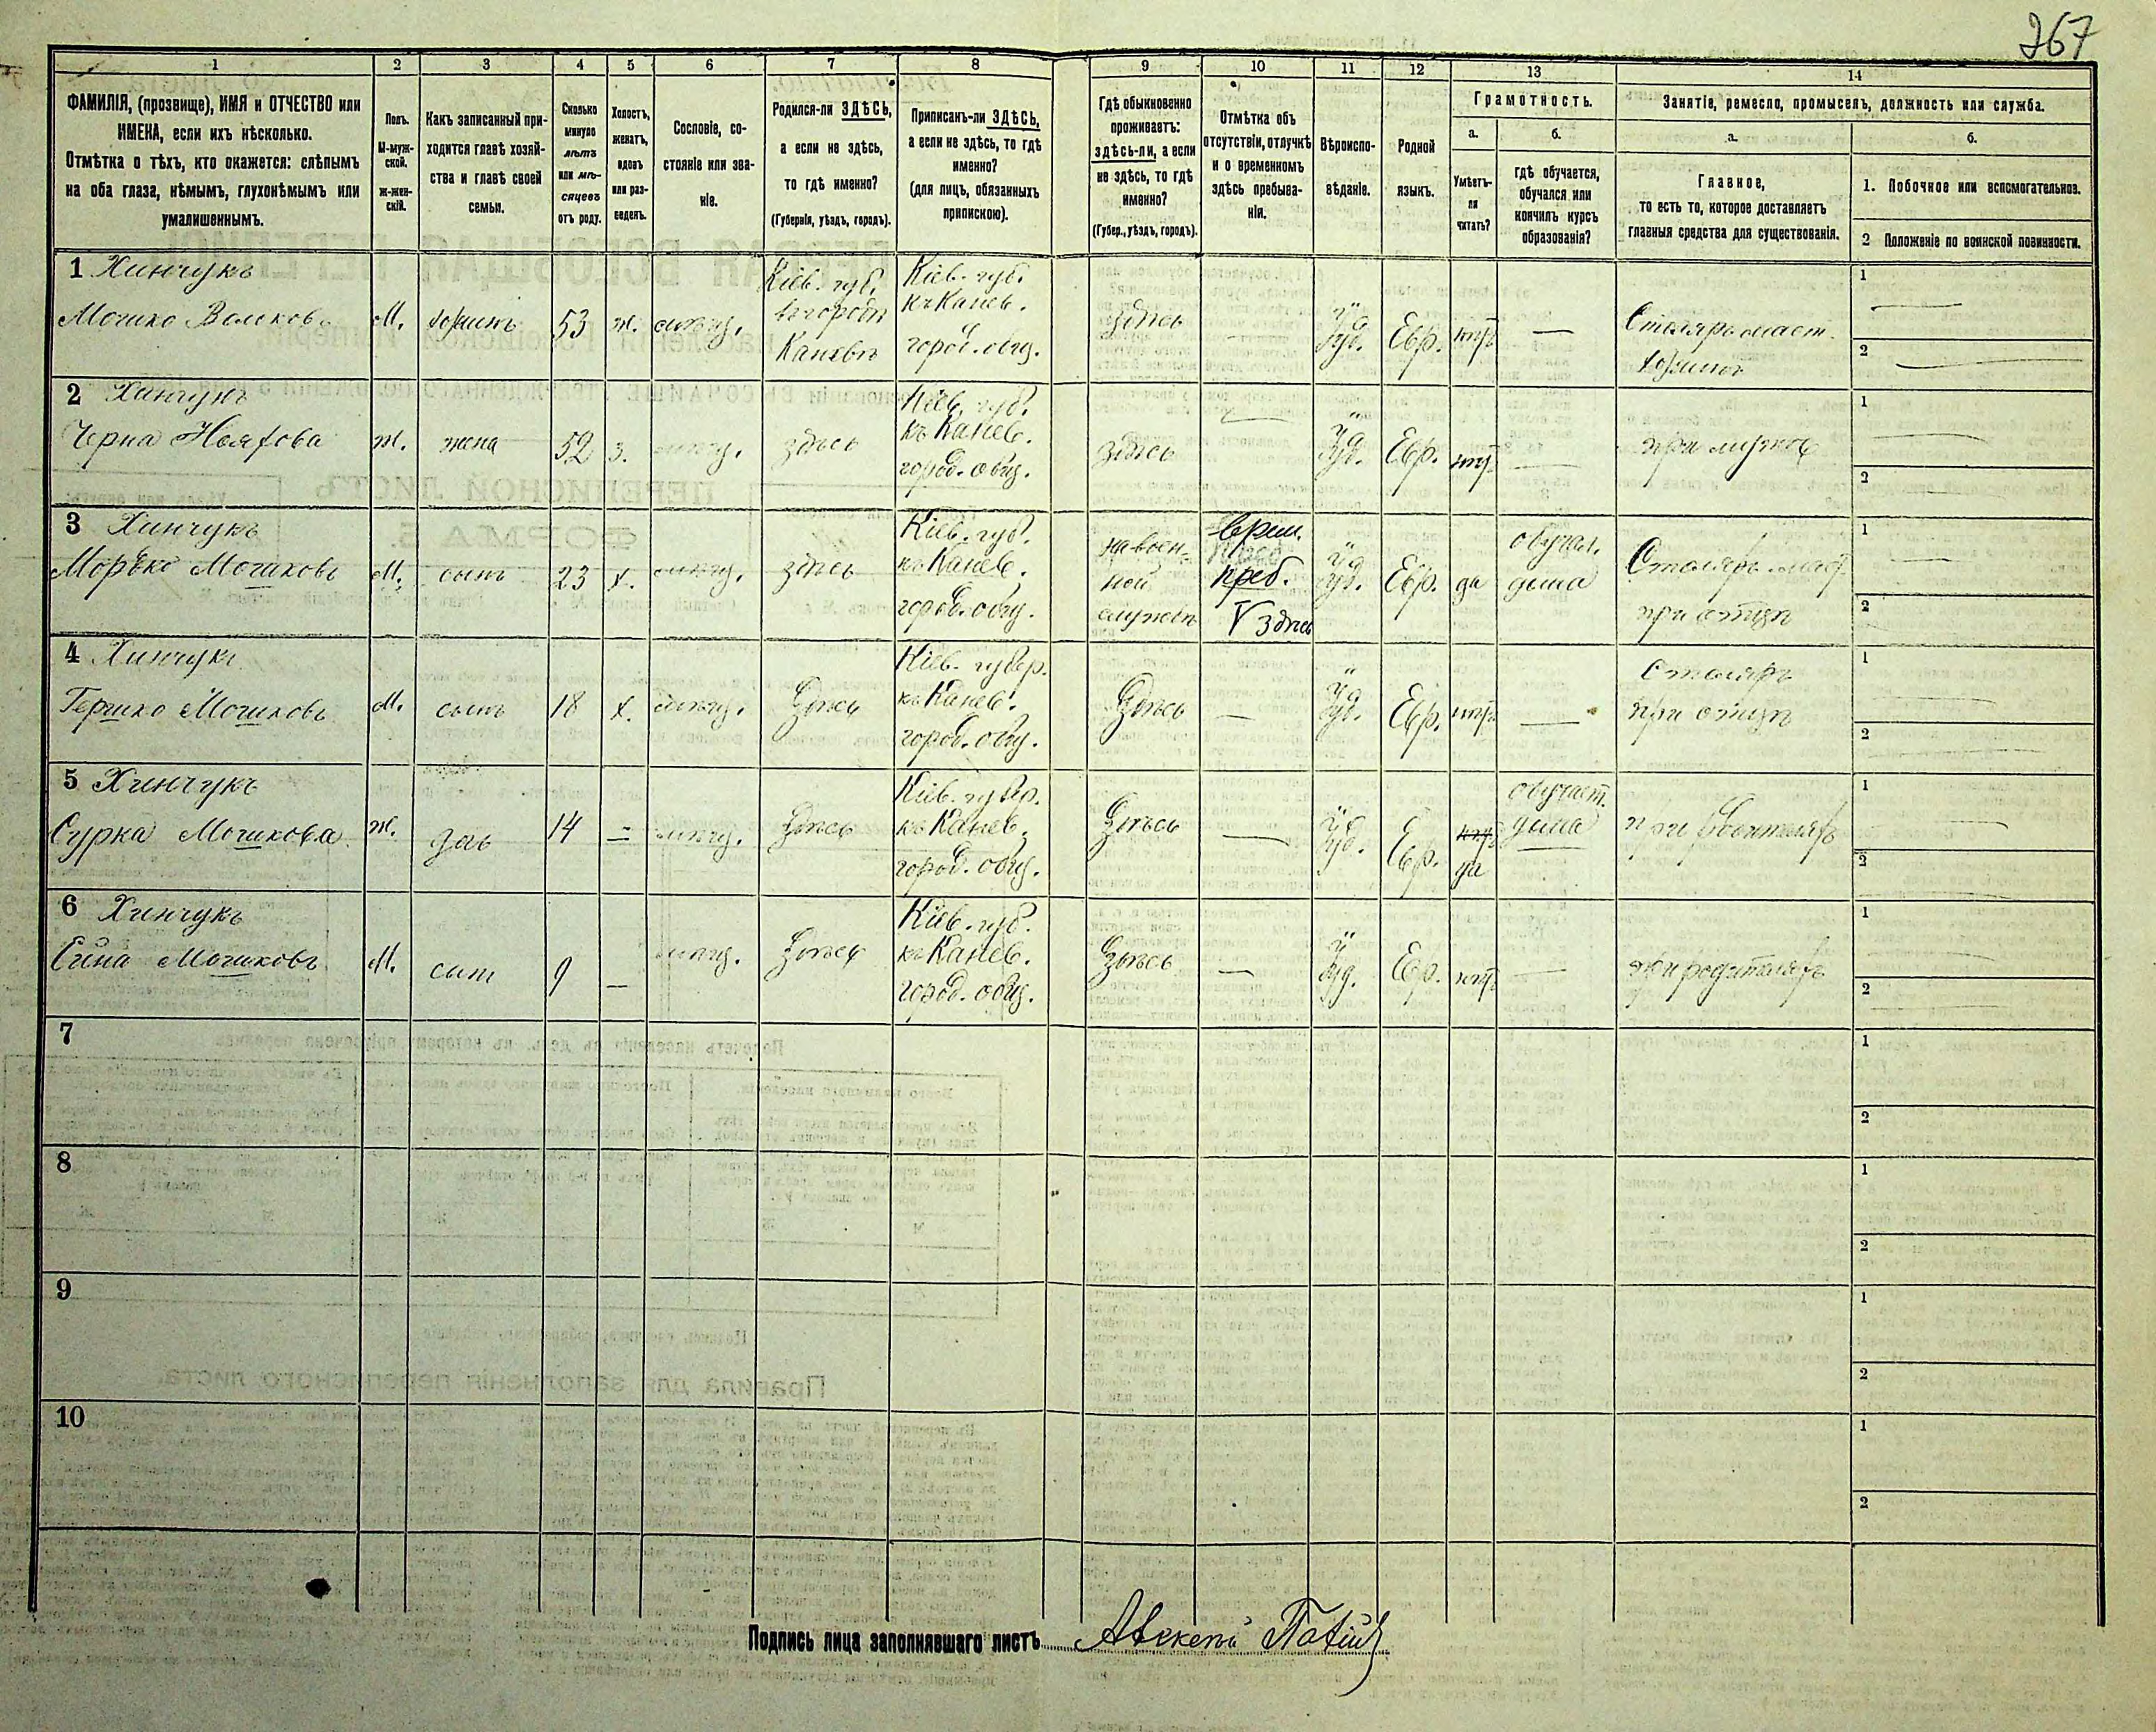 267
1 2 3 4 5 6 7 8 9 10 11 12 13 14
ФАМИЛІЯ, (прозвище), ИМЯ и ОТЧЕСТВО или
ИМЕНА, если ихъ нѣсколько.
Отмѣтка о тѣхъ, кто окажется: слѣпымъ
на оба глаза, нѣмымъ, глухонѣмымъ или
умалишеннымъ.
Полъ.
М-муж-
ской.
ж-жен-
скій.
Какъ записанный при-
ходится главѣ хозяй-
ства и главѣ своей
семьи.
Сколько
минуло
лѣтъ
или мѣ-
сяцевъ
отъ роду.
Холостъ,
женатъ,
вдовъ
или раз-
веденъ.
Сословіе, со-
стояніе или зва-
ніе.
Родился-ли ЗДѢСЬ,
а если не здѣсь,
то гдѣ именно?
(Губернія, уѣздъ, городъ).
Приписанъ-ли ЗДѢСЬ,
а если не здѣсь, то гдѣ
именно?
(для лицъ, обязанныхъ
припискою).
Гдѣ обыкновенно
проживаетъ:
здѣсь-ли, а если
не здѣсь, то гдѣ
именно?
(Губер., уѣздъ, городъ).
Отмѣтка объ
отсутствіи, отлучкѣ
и о временномъ
здѣсь пребыва-
ніи.
Вѣроиспо-
вѣданіе.
Родной
языкъ.
Грамотность.
а.
Умѣетъ-
ли
читать?
б.
гдѣ обучается,
обучался или
кончилъ курсъ
образованія?
Занятіе, ремесло, промыселъ, должность или служба.
а.
Главное,
то есть то, которое доставляетъ
главныя средства для существованія.
б.
1. Побочное или вспомогательное.
2 Положеніе по воинской повинности.
1 Хинчукъ
Мошко Волковъ
М.
хозяинъ
53
ж.
Кіев. губ.
въ городѣ
Каневѣ
Кіев. губ.
къ Канев.
город. общ.
здѣсь
—
Іуд.
Евр.
нѣтъ
—
Столяръ маст.
хозяинъ
1 —
2 —
2 Хинчукъ
Черна
ж.
жена
52
з.
здѣсь
Кіев. губ.
къ Канев.
город. общ.
здѣсь
—
Іуд.
Евр.
нѣтъ
—
при мужѣ
1 —
2 —
3 Хинчукъ
Морько Мошковъ
М.
сынъ
23
х.
здѣсь
Кіев. губ.
къ Канев.
город. общ.
на воен-
ной
службѣ
врем.
преб.
V здѣсь
Іуд.
Евр.
да
обучал.
дома
Столяръ маст.
при отцѣ
1 —
2 —
4 Хинчукъ
Гершко Мошковъ
М.
сынъ
18
х.
Здѣсь
Кіев. губер.
къ Канев.
город. общ.
Здѣсь
—
Іуд.
Евр.
нѣтъ
—
Столяръ
при отцѣ
1 —
2 —
5 Хинчукъ
Сурка Мошкова
ж.
дочь
14
—
Здѣсь
Кіев. губер.
къ Канев.
город. общ.
Здѣсь
—
Іуд.
Евр.
нѣтъ
да
обучает.
дома
при родителяхъ
1 —
2 —
6 Хинчукъ
Мошковъ
М.
сын
9
—
Здѣсь
Кіев. губ.
къ Канев.
город. общ.
Здѣсь
—
Іуд.
Евр.
нѣтъ
—
при родителяхъ
1 —
2 —
7
1
2
8
1
2
9
1
2
10
1
2
Подпись лица заполнявшаго листъ